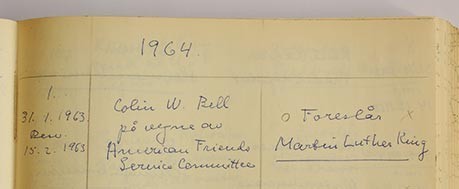 1964.
1.
31.1.1963
Rev.
15.2.1963
Colin W. Bell
på vegne av
American Friends
Service Committee
o Foreslår x
Martin Luther King